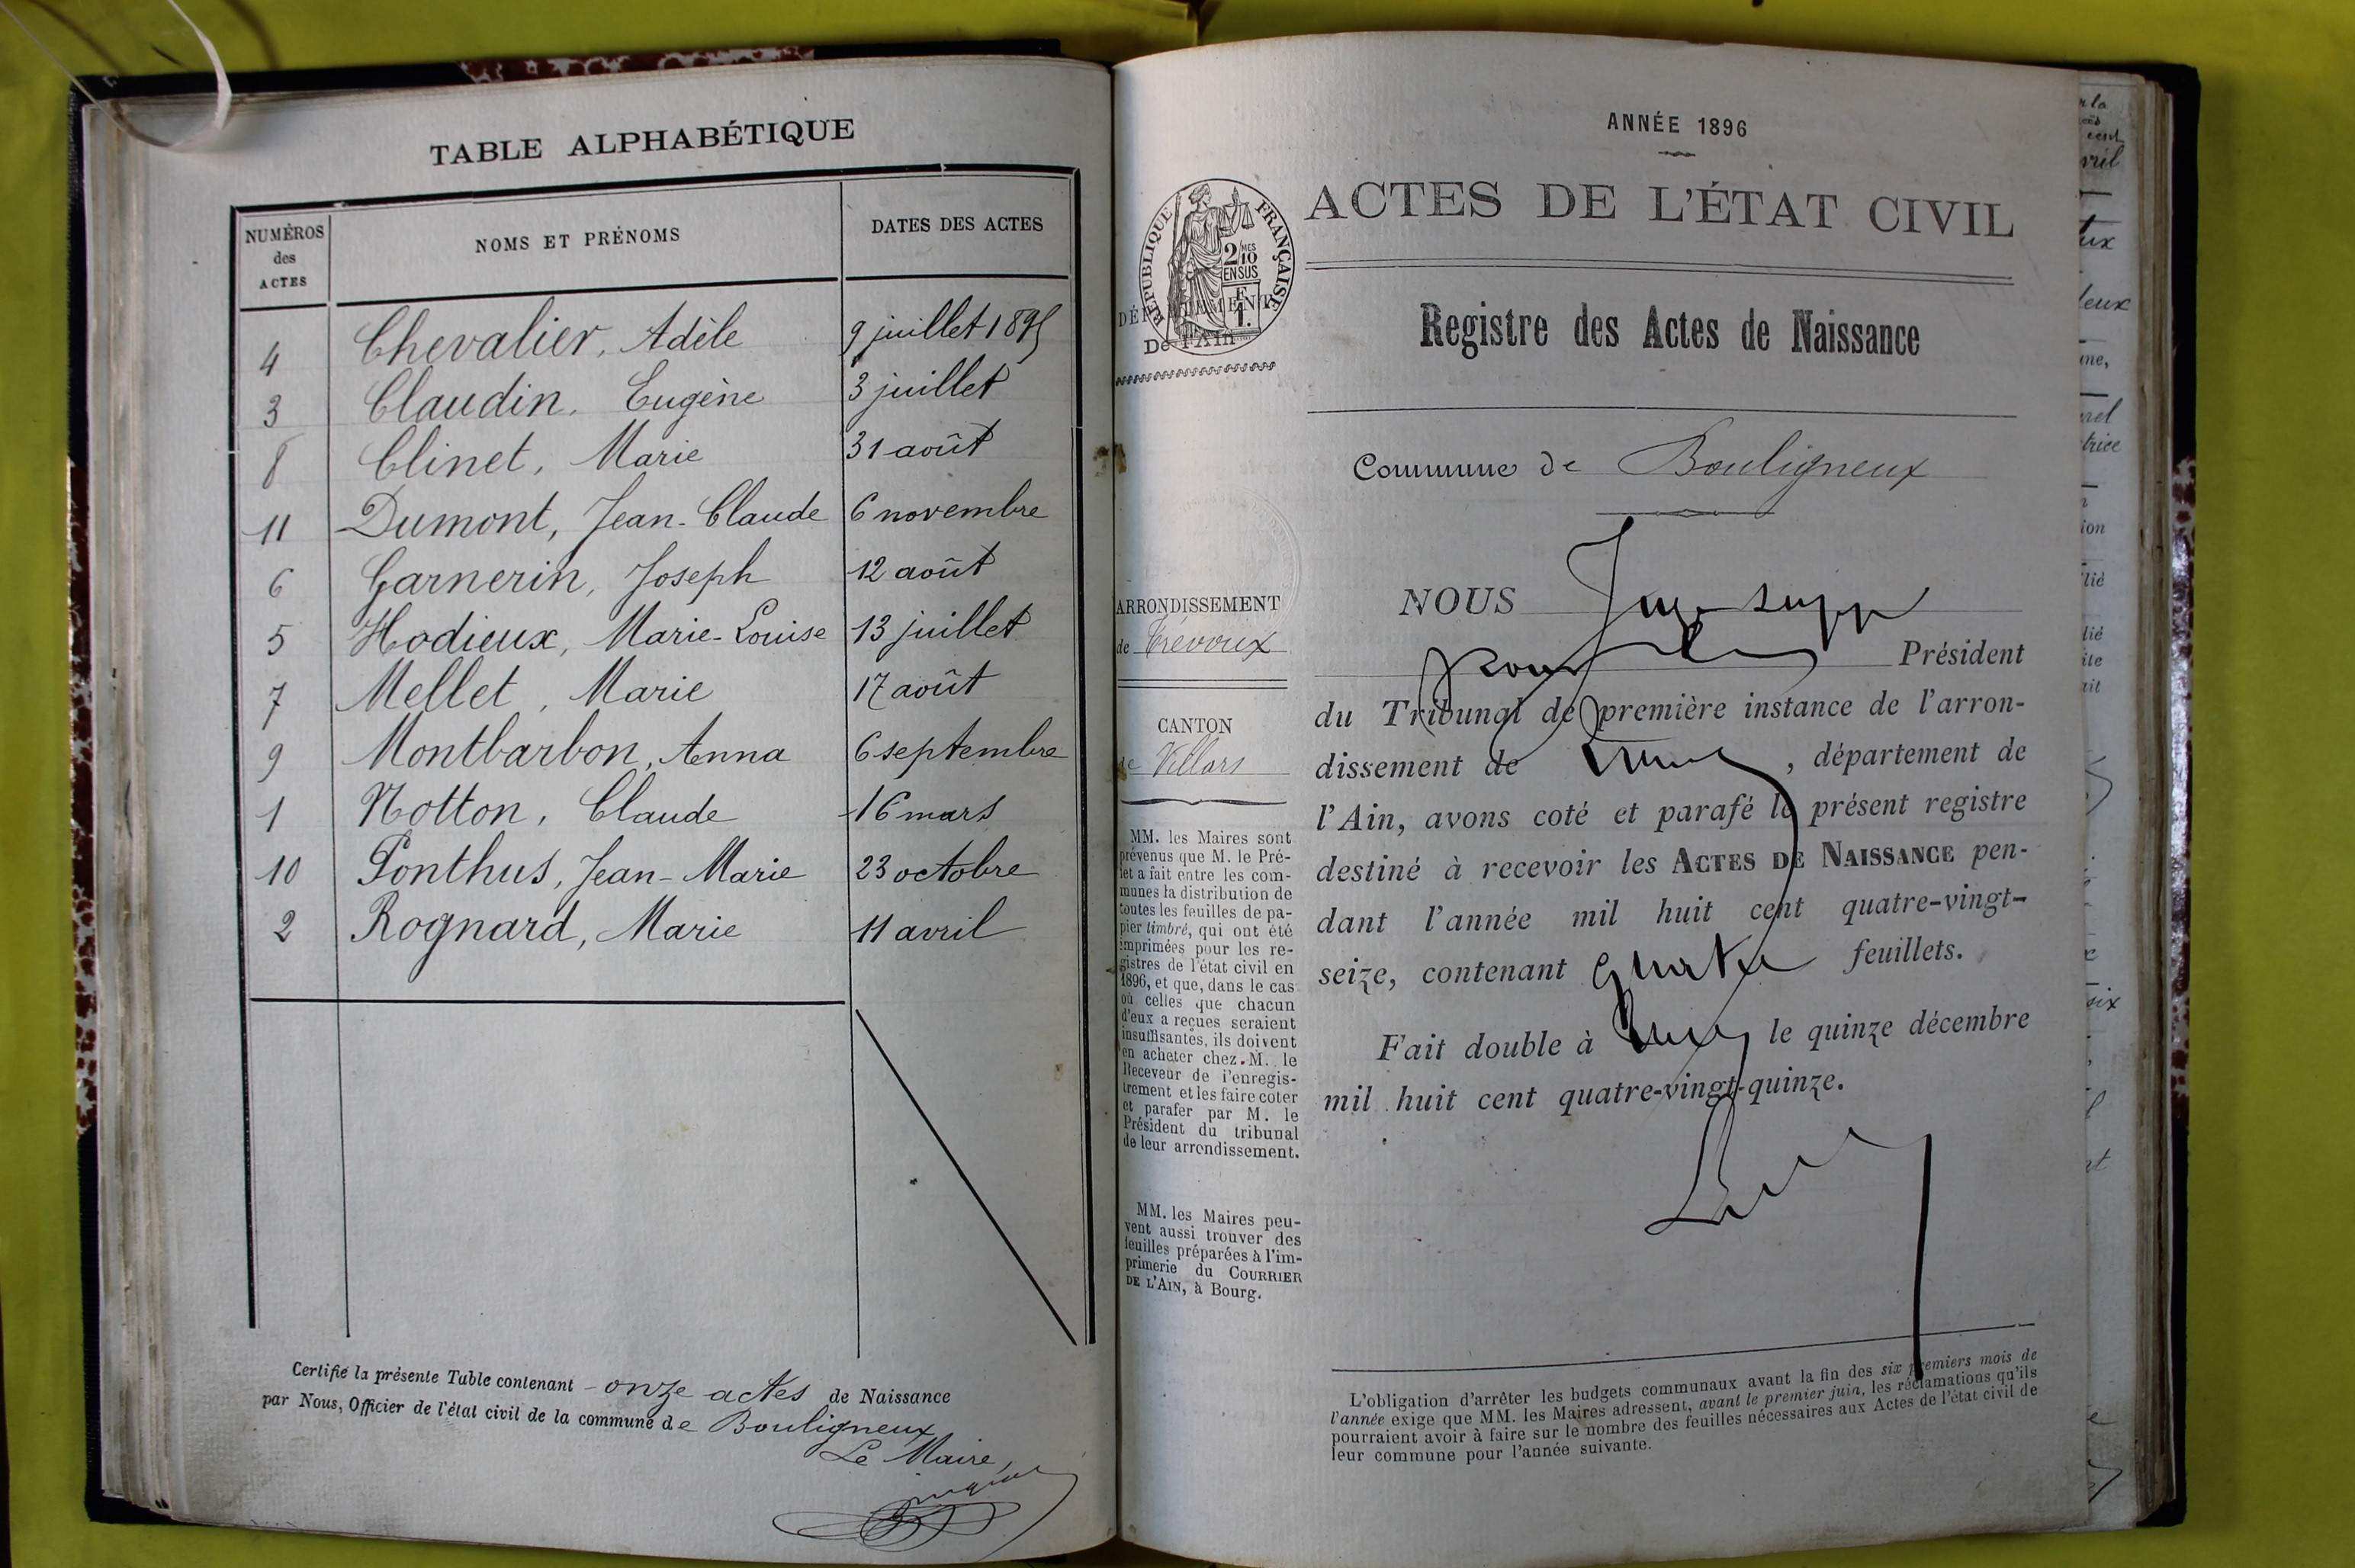 TABLE ALPHABÉTIQUE
NUMÉROS
des
ACTES
NOMS ET PRÉNOMS
DATES DES ACTES
4 Chevalier, Adèle 9 juillet 1895
3 Claudin, Eugène 3 juillet
8 Clinet, Marie 31 août
11 Dumont, Jean-Claude 6 novembre
6 Garnerin, Joseph 12 août
5 Hodieux, Marie-Louise 13 juillet
7 Mellet, Marie 17 août
9 Montbarbon, Anna 6 septembre
1 Notton, Claude 16 mars
10 Ponthus, Jean-Marie 23 octobre
2 Rognard, Marie 11 avril
Certifié la présente Table contenant onze actes de Naissance
par Nous, Officier de l'état civil de la commune de Bouligneux
Le Maire,
ANNÉE 1896
ACTES DE L'ÉTAT CIVIL
RÉPUBLIQUE FRANÇAISE
2/10 MES
EN SUS
DÉPARTEMENT
De l'Ain
Registre des Actes de Naissance
Commune de Bouligneux
ARRONDISSEMENT
de Trévoux
CANTON
de Villars
MM. les Maires sont
prévenus que M. le Pré-
fet a fait entre les com-
munes la distribution de
toutes les feuilles de pa-
pier timbré, qui ont été
imprimées pour les re-
gistres de l'état civil en
1896, et que, dans le cas
où celles que chacun
d'eux a reçues seraient
insuffisantes, ils doivent
en acheter chez M. le
Receveur de l'enregis-
trement et les faire coter
et parafer par M. le
Président du tribunal
de leur arrondissement.
MM. les Maires peu-
vent aussi trouver des
feuilles préparées à l'im-
primerie du COURRIER
DE L'AIN, à Bourg.
NOUS Juge supp
pour Président
du Tribunal de première instance de l'arron-
dissement de , département de
l'Ain, avons coté et parafé le présent registre
destiné à recevoir les ACTES DE NAISSANCE pen-
dant l'année mil huit cent quatre-vingt-
seize, contenant quatre feuillets.
Fait double à le quinze décembre
mil huit cent quatre-vingt-quinze.
L'obligation d'arrêter les budgets communaux avant la fin des six premiers mois de
l'année exige que MM. les Maires adressent, avant le premier juin, les réclamations qu'ils
pourraient avoir à faire sur le nombre des feuilles nécessaires aux Actes de l'état civil de
leur commune pour l'année suivante.